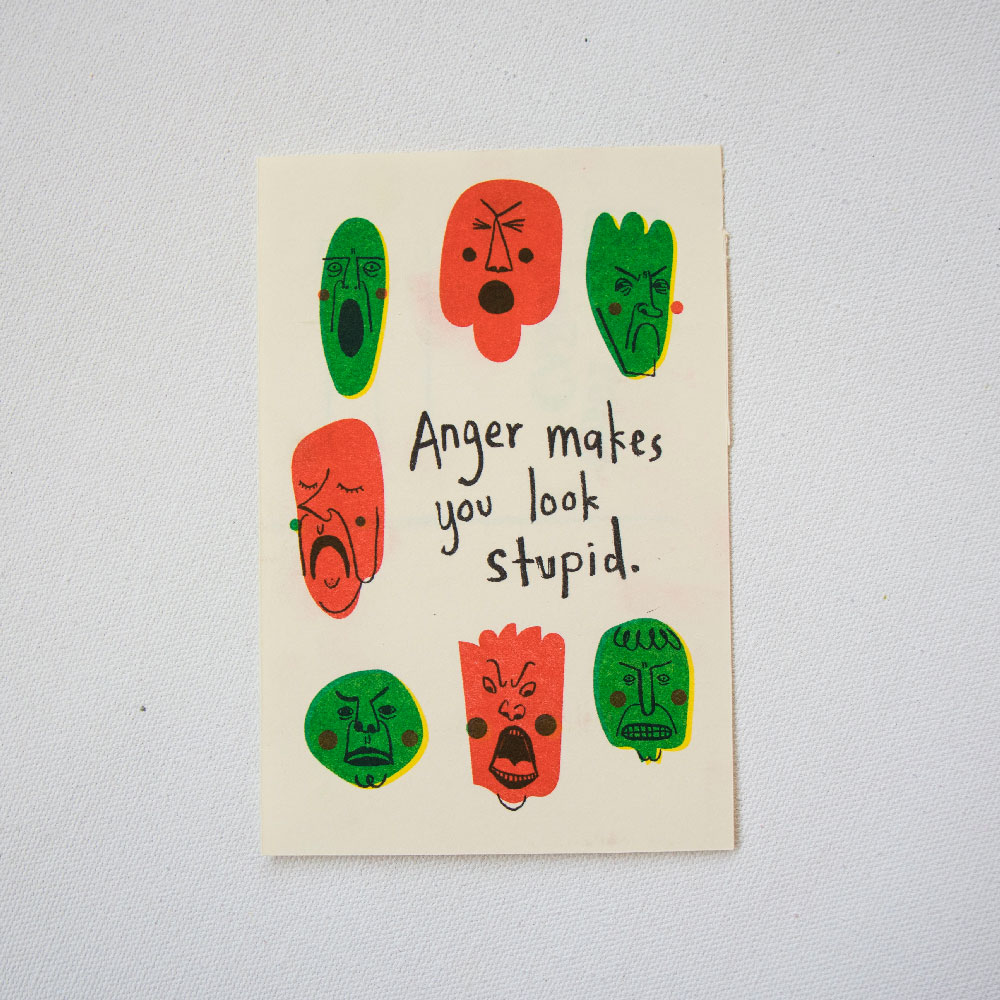 Anger makes
you look
stupid.